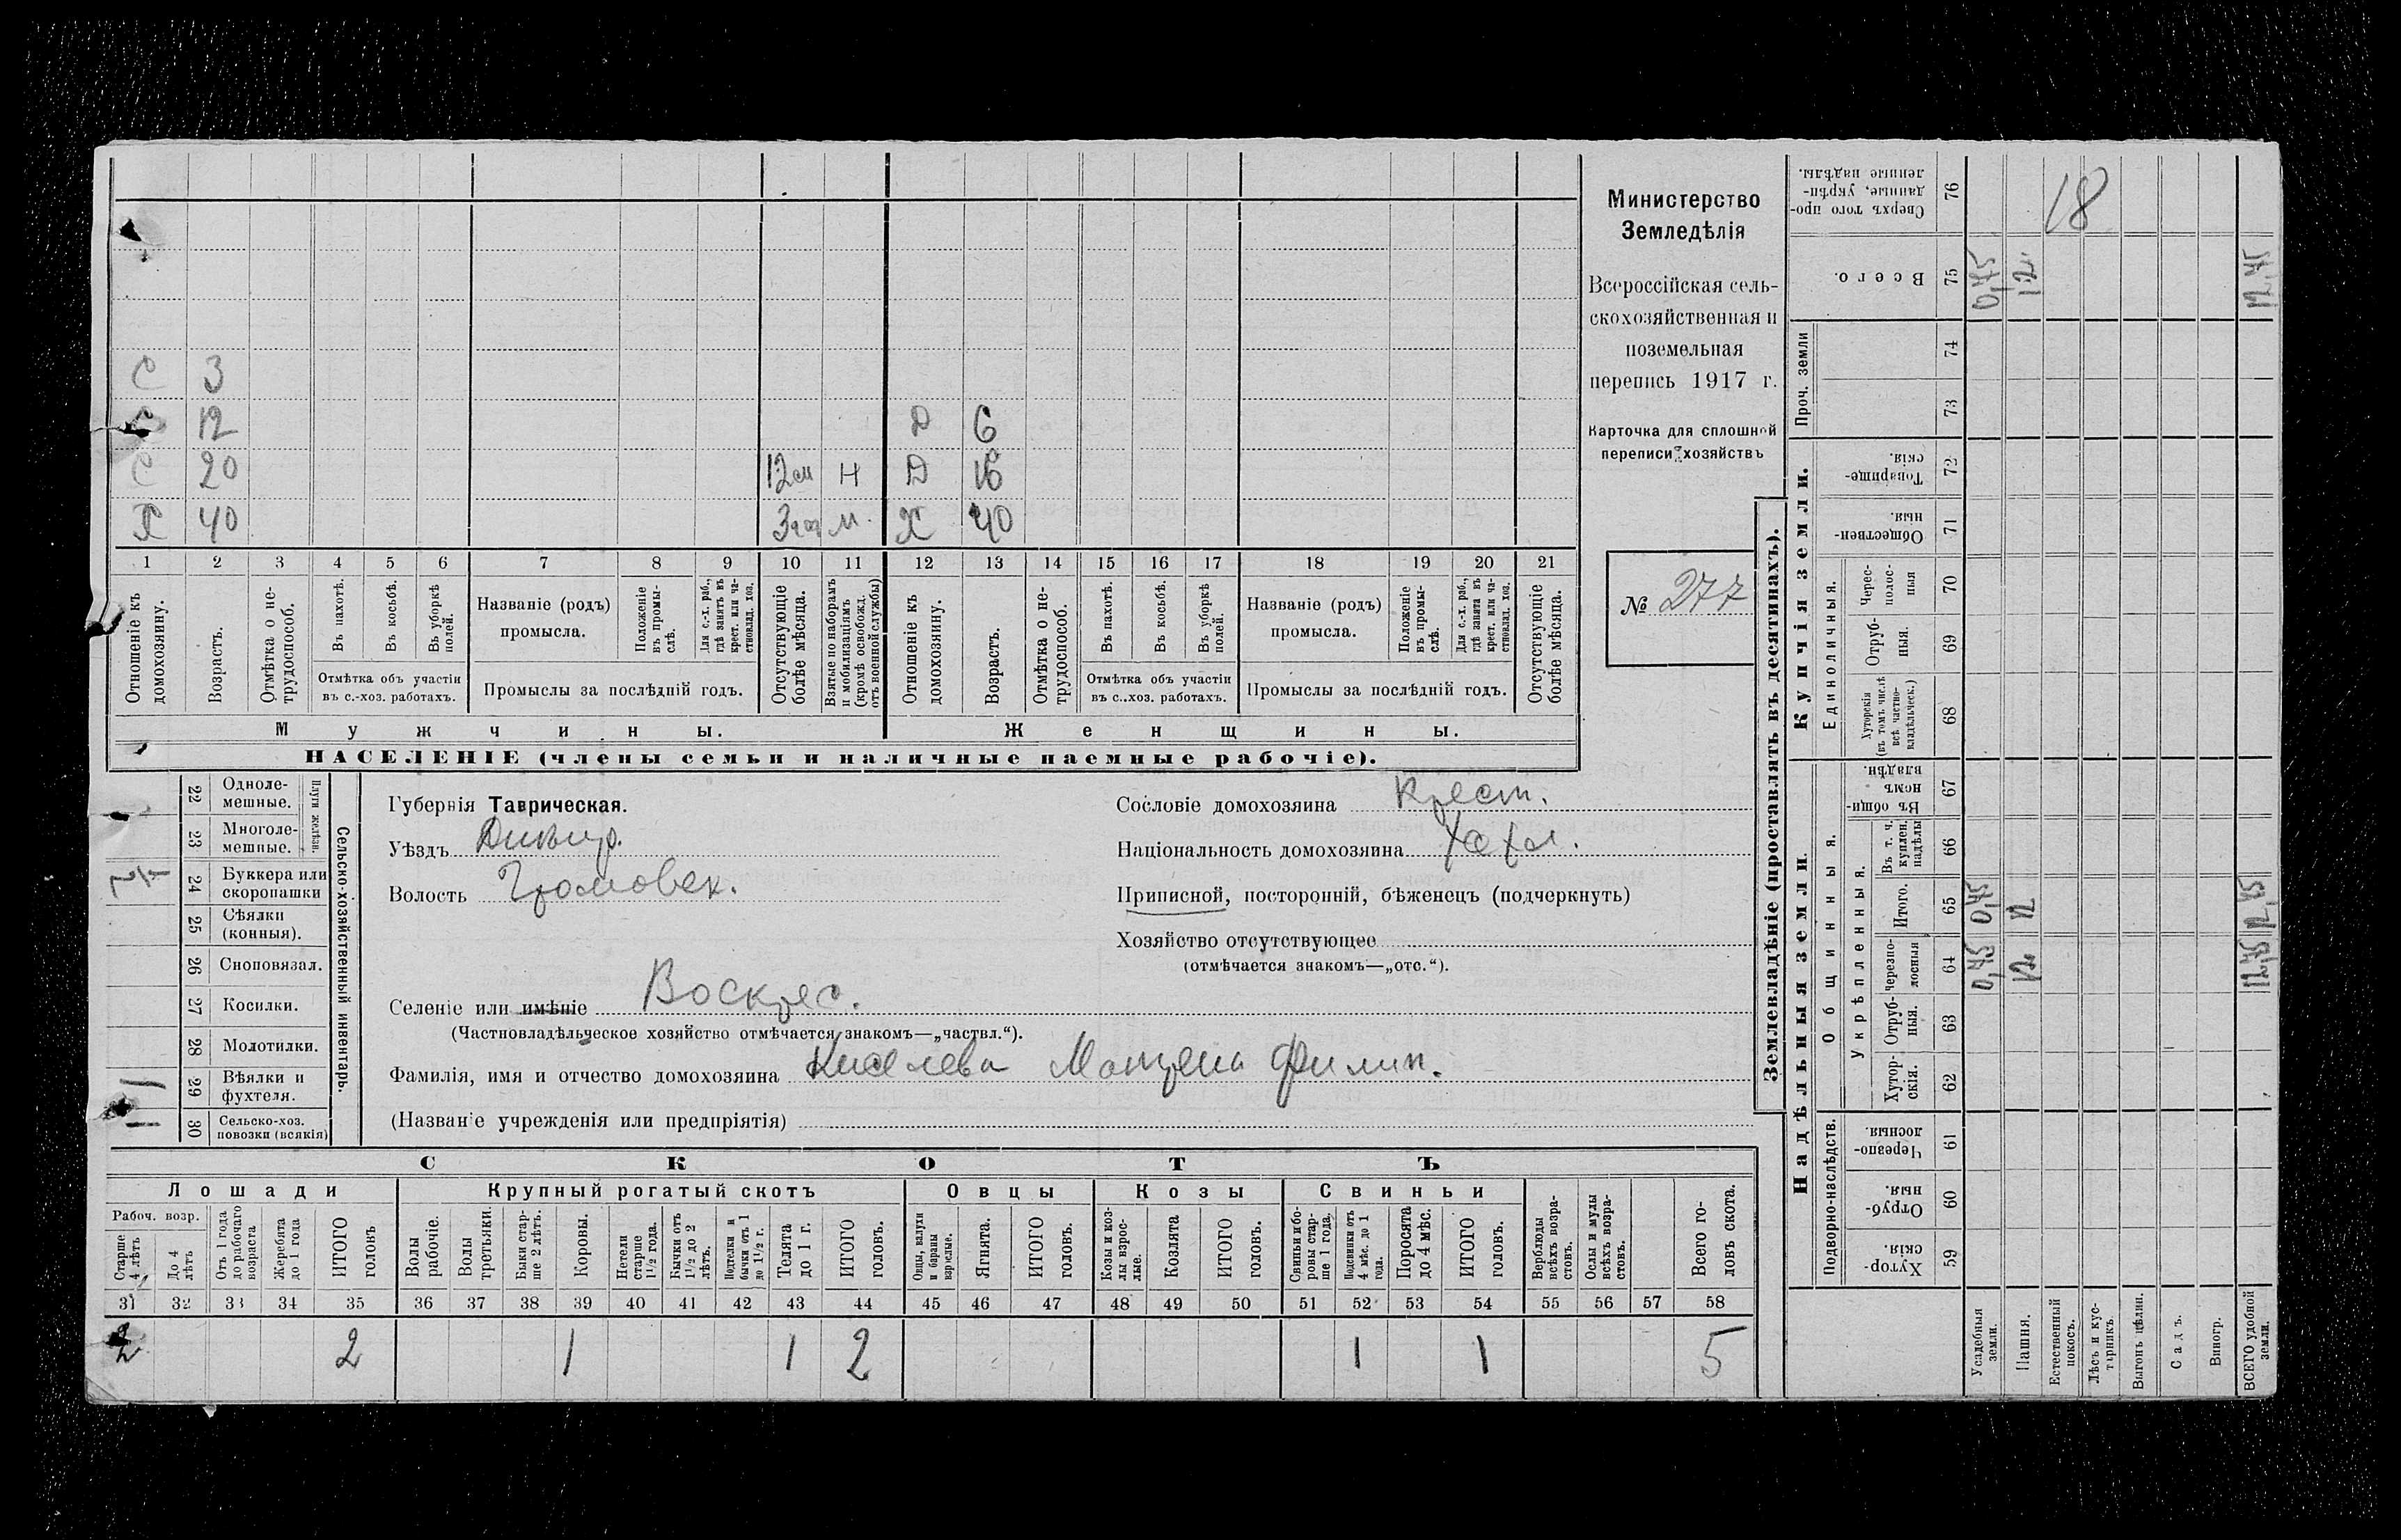 Министерство
Земледѣлія
Всероссійская сель-
скохозяйственная и
поземельная
перепись 1917 г.
Карточка для сплошной
переписи хозяйствъ
№ 277
С 3
12 Д 6
С 20 12 см Н Д 16
Х 40 3 м. Х 40
1 2 3 4 5 6 7 8 9 10 11 12 13 14 15 16 17 18 19 20 21
Отношеніе къ домохозяину.
Возрастъ.
Отмѣтка о не-трудоспособ.
Въ пахотѣ.
Въ косьбѣ.
Въ уборкѣ полей.
Отмѣтка объ участіи въ с.-хоз. работахъ.
Названіе (родъ) промысла.
Положеніе въ промы-слѣ.
Для с.-х. раб., гдѣ занятъ въ крест. или ча-стновлад. хоз.
Промыслы за послѣдній годъ.
Отсутствующіе болѣе мѣсяца.
Взятые по наборамъ и мобилизаціямъ (кромѣ освобожд. отъ военной службы)
Отношеніе къ домохозяину.
Возрастъ.
Отмѣтка о не-трудоспособ.
Въ пахотѣ.
Въ косьбѣ.
Въ уборкѣ полей.
Отмѣтка объ участіи въ с.-хоз. работахъ.
Названіе (родъ) промысла.
Положеніе въ промы-слѣ.
Для с.-х. раб., гдѣ занята въ крест. или ча-стновлад. хоз.
Промыслы за послѣдній годъ.
Отсутствующіе болѣе мѣсяца.
Мужчины. Женщины.
НАСЕЛЕНІЕ (члены семьи и наличные наемные рабочіе).
Сельско-хозяйственный инвентарь.
Плуги желѣзн.
22 Одноле-мешные.
23 Многоле-мешные.
24 Буккера или скоропашки
25 Сѣялки (конныя).
26 Сноповязал.
27 Косилки.
28 Молотилки.
1 29 Вѣялки и фухтеля.
1 30 Сельско-хоз. повозки (всякія)
Губернія Таврическая.
Уѣздъ Днѣпр.
Волость Громовск.
Селеніе или имѣніе Воскрес.
(Частновладѣльческое хозяйство отмѣчается знакомъ—„частвл.“).
Фамилія, имя и отчество домохозяина Киселева Матрена Филип.
(Названіе учрежденія или предпріятія)
Сословіе домохозяина Крест.
Національность домохозяина Хохл.
Приписной, посторонній, бѣженецъ (подчеркнуть)
Хозяйство отсутствующее
(отмѣчается знакомъ—„отс.“).
СКОТЪ
Лошади Крупный рогатый скотъ Овцы Козы Свиньи
Рабоч. возр.
Старше 4 лѣтъ
До 4 лѣтъ
Отъ 1 года до рабочаго возраста
Жеребята до 1 года
ИТОГО головъ
Волы рабочіе.
Волы третьяки.
Быки стар-ше 2 лѣтъ.
Коровы.
Нетели старше 1½ года.
Бычки отъ 1½ до 2 лѣтъ.
Подтелки и бычки отъ 1 до 1½ г.
Телята до 1 г.
ИТОГО головъ.
Овцы, валухи и бараны взрослые.
Ягнята.
ИТОГО головъ.
Козы и коз-лы взрос-лые.
Козлята
ИТОГО головъ.
Свиньи и бо-ровы стар-ше 1 года.
Подсвинки отъ 4 мѣс. до 1 года.
Поросята до 4 мѣс.
ИТОГО головъ.
Верблюды всѣхъ возра-стовъ.
Ослы и мулы всѣхъ возра-стовъ.
Всего го-ловъ скота.
31 32 33 34 35 36 37 38 39 40 41 42 43 44 45 46 47 48 49 50 51 52 53 54 55 56 57 58
2 2 1 1 2 1 1 5
Землевладѣніе (проставлять въ десятинахъ).
Надѣльныя земли. Купчія земли.
Подворно-наслѣдств.
Общинныя.
Укрѣпленныя.
Единоличныя.
Проч. земли
76 Сверхъ того про-данные, укрѣп-ленные надѣлы. 18
75 Всего. 0,45 12 12,45
74
73
72 Товарище-скія.
71 Обществен-ныя.
70 Черес-полос-ныя
69 Отруб-ныя.
68 Хуторскія (въ томъ числѣ всѣ частно-владѣльческ.)
67 Въ общи-номъ владѣн.
66 Въ т. ч. куплен. надѣлы
65 Итого. 0,45 12 12,45
64 черезпо-лосныя 0,45 12 12,45
63 Отруб-ныя.
62 Хутор-скія.
61 Черезпо-лосныя.
60 Отруб-ныя.
59 Хутор-скія.
Усадебныя земли.
Пашня.
Естественный покосъ.
Лѣсъ и кус-тарникъ.
Выгонъ цѣлин.
Садъ.
Виногр.
ВСЕГО удобной земли.